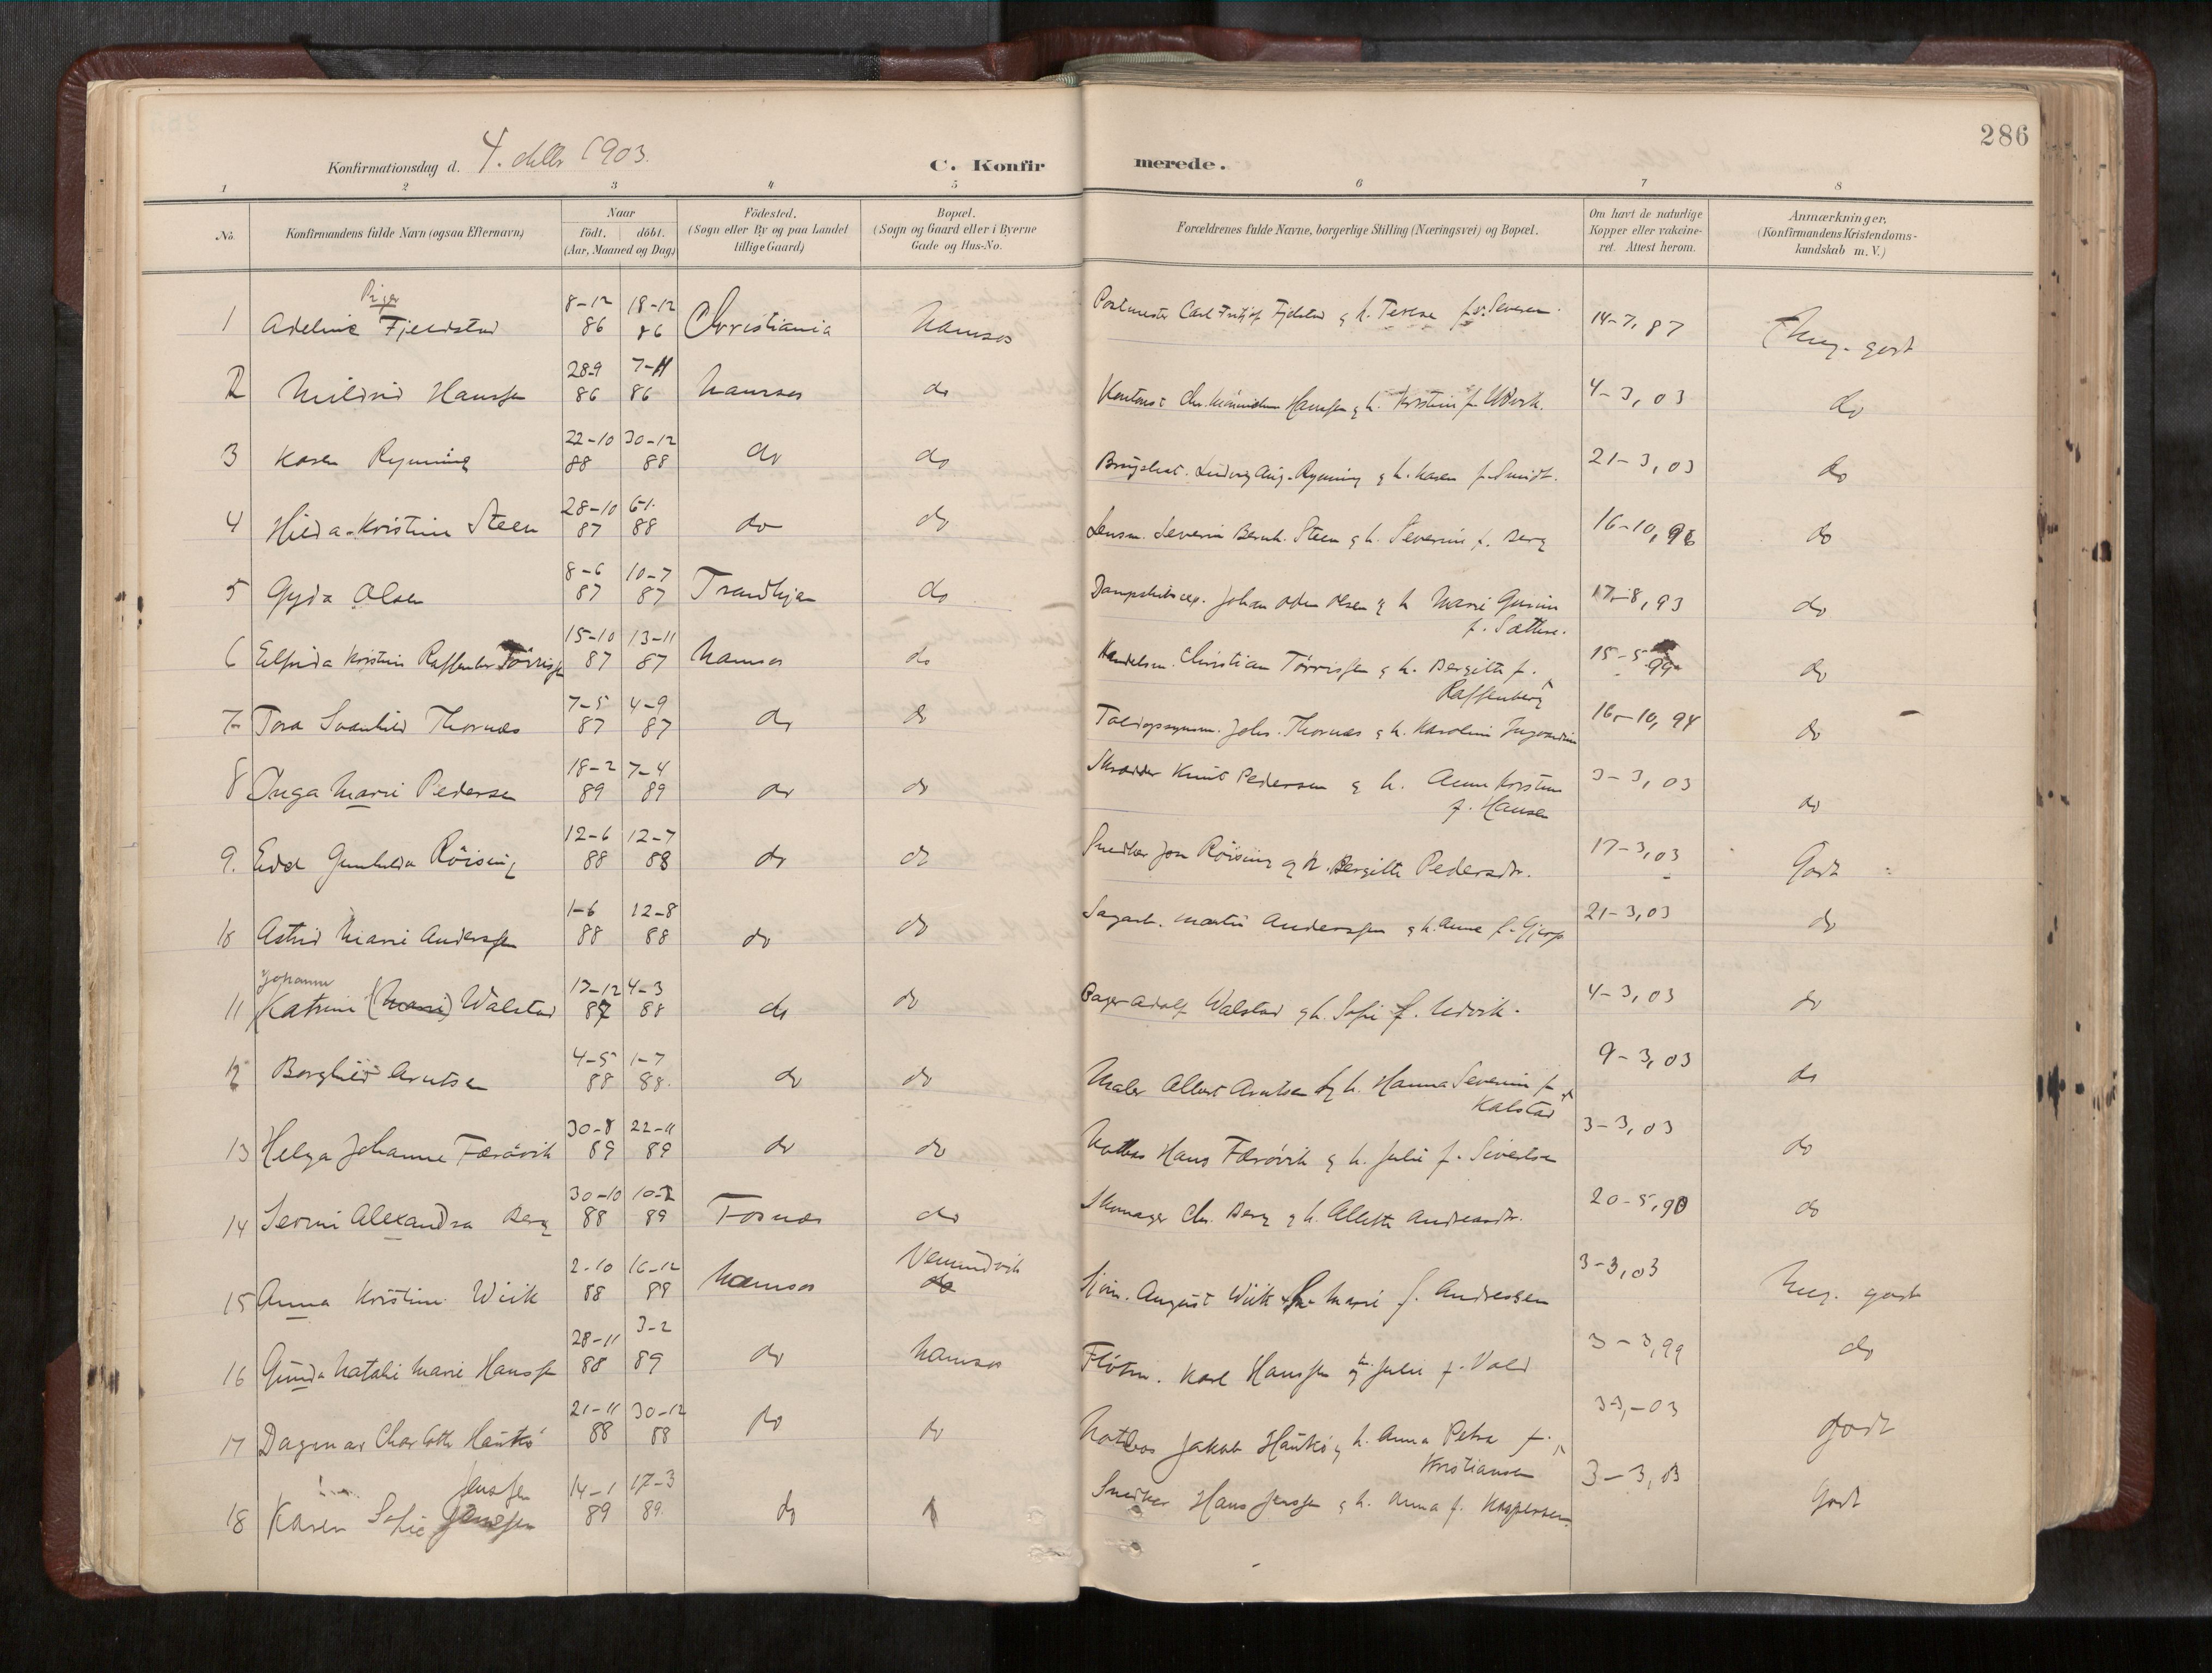 286
Konfirmationsdag d. 4. 1903.
C. Konfir merede.
1 2 3 4 5 6 7 8
No.
Konfirmandens fulde Navn (ogsaa Efternavn)
Naar
födt. döbt.
(Aar, Maaned og Dag)
Födested.
(Sogn eller By og paa Landet
tillige Gaard)
Bopæl.
(Sogn og Gaard eller i Byerne
Gade og Hus-No.
Forældrenes fulde Navne, borgerlige Stilling (Næringsvei) og Bopæl.
Om havt de naturlige
Kopper eller vakcine-
ret. Attest herom.
Anmærkninger.
(Konfirmandens Kristendoms-
kundskab m. V.)
Piger
1 Adeline Fjeldstad 8-12 86 18-12 86 Christiania Namsos Postmester Carl Fritjof Fjelstad g h. Terese f. Seversen 14-7, 87 Meg. godt
2 Mildrid Hanssen 28-9 86 7-11 86 Namsos do Hanssen g h. Kristine f. 4-3, 03 do
3 Karen Rynning 22-10 88 30-12 88 do do Ludvig Aug. Rynning g h. Karen f. Smidt. 21-3, 03 do
4 Hilda Kristine Steen 28-10 87 6-1. 88 do do Lensm. Severin Bernh. Steen g h. Severine f. Berg 16-10, 98 do
5 Gyda Olsen 8-6 87 10-7 87 Trondhjem do Dampskibsexp. Johan Olsen g h Marie
f. Sæther. 17-8, 93 do
6 Elfrida Kristine Raffenberg Törrissen 15-10 87 13-11 87 Namsos do Handelsm. Christian Törrissen g h. Bergitte f.
Raffenberg 15-5 99 do
7 Tora Svanhild Thornæs 7-5 87 4-9 87 do do Toldopsynsm. Johs. Thornæs g h. Karoline 16-10, 94 do
8 Inga Marie Pedersen 18-2 89 7-4 89 do do Skrædder Knut Pedersen g h. Anna Kristine
f. Hansen 3-3, 03 do
9. Edel Gunhilda Röising 12-6 88 12-7 88 do do Snedker Jon Röising g h. Bergitte Pedersdtr. 17-3, 03 Godt
10 Astrid Marie Anderssen 1-6 88 12-8 88 do do Sagarb. Martin Anderssen g h. Anne f. 21-3, 03 do
Johanne
11 Katrine (Marie) Walstad 17-12 87 4-3 88 do do Bager Adolf Walstad g h. Sofie f. Udvik. 4-3, 03 do
12 Borghild Arntsen 4-5 88 1-7 88. do do Maler Albert Arntsen g h. Hanna Severine f.
Kalstad 9-3, 03 do
13 Helga Johanne Færövik 30-8 89 22-11 89 do do Hans Færövik g h. Julie f. Sivertsen 3-3, 03 do
14 Alexandra Berg 30-10 88 10-2 89 Fosnæs do Skomager Chr. Berg g h. Allette Andreasdtr. 20-5, 90 do
15 Anna Kristine Wiik 2-10 88 16-12 88 Namsos Vemundvik do Sjöm. August Wiik g h. Marie f. Andressen 3-3, 03 Meg. godt
16 Gunda Natalie Marie Hanssen 28-11 88 3-2 89 do Namsos Flötm. Karl Hanssen g h. Julie f. Vold 3-3, 99 do
17 Dagmar Charlotte Hautkö 21-11 88 30-12 88 do do Jakob Hautkö g h. Anna Petra f.
Kristiansen 3-3,-03 Godt
Jenssen
18 Karen Sofie Janssen 14-1 89 17-3 89. do Snedker Hans Jenssen g h. Anna f. Kaspersen. 3-3, 03 Godt